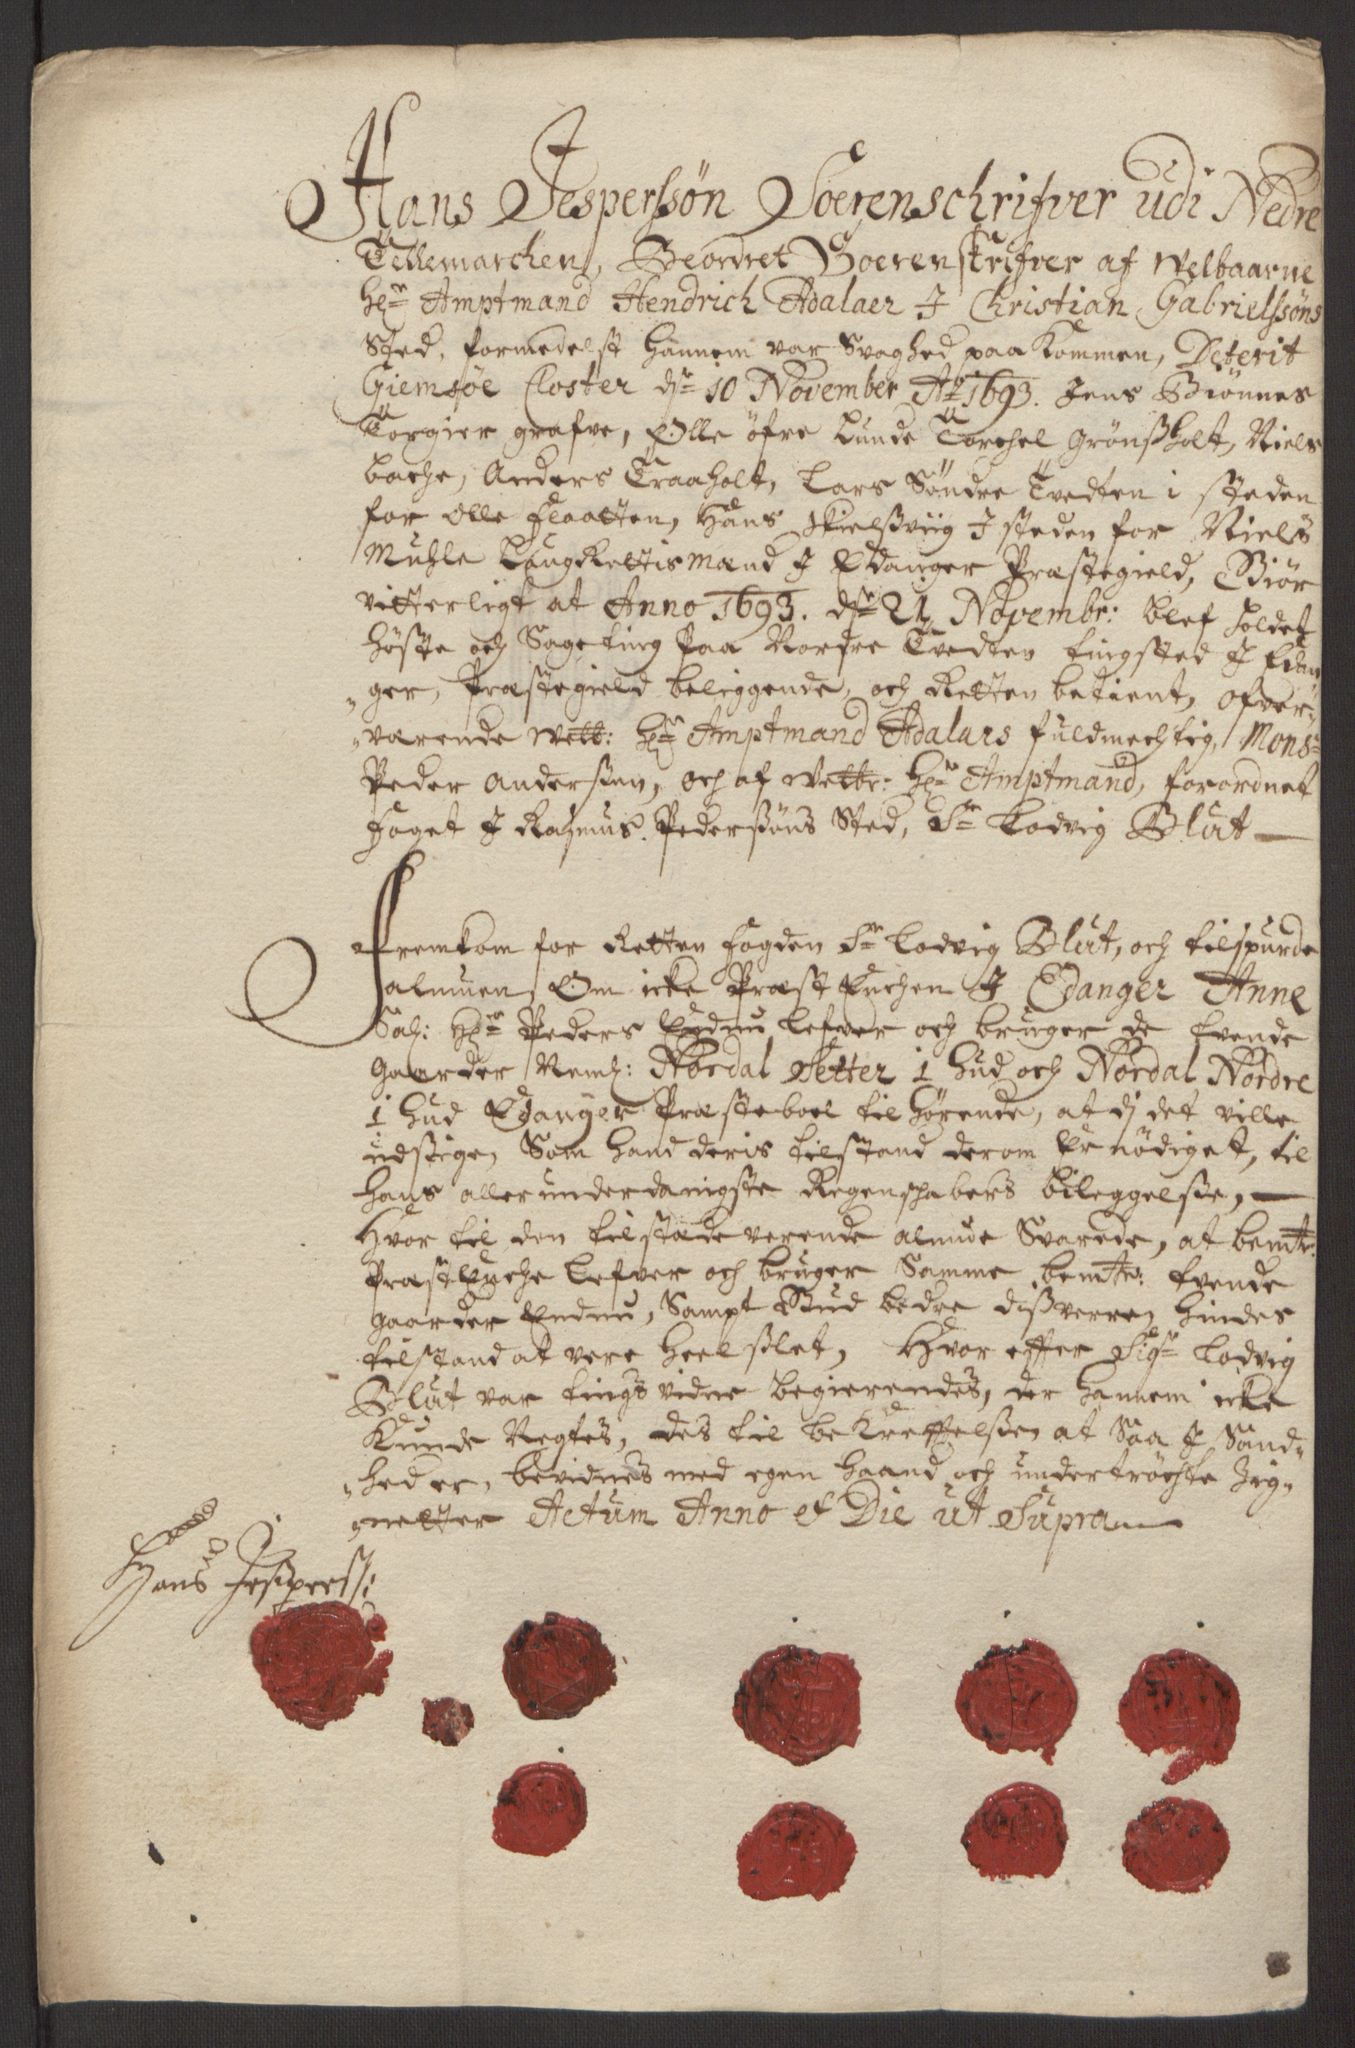 Hans Jesperssøn Soerenschrifver udi Nedre
Tellemarchen, Beordret Soerenskrifver af Welbaarne
Hr. Amptmand Hendrich Adalaer J Christian Gabrielssøns
Sted, formedelst hannem var Svaghed paa Kommen, Deterit
Giemsøe Closter dn 10 November Ao 1693. Jens Biønnes
Torgier grafve, Olle öfre Lunde Torchel Grönßholt, Niels
bache, Anders Traaholt, Lars Söndre Tvedten i steden
for Olle Flaatten, Hans Skielßviig J steden for Niels
Muhle LaugRettismænd J Edanger Præstegield, Giör
vitterligt at Anno 1693. dn 21 Novembr: blef holdet
höste och Sageting paa Nordre Tvedten tingsted J Edan
ger, Præstegield beliggende, och Retten betient, ofver,
værende Welb: Hr Amptmand Adalars fuldmechtig, Monsr
Peder Andersen, och af Welbr: Hr Amptmand, forordnet
Foget J Rasmus Pederßöns Sted, Sr Lodvig Blut
Fremkom for Retten fogden Sr Lodvig Blut, och tilspurde
almuen, Om icke Præst Enchen J Edanger Anne
Sal: Hr Peders Endnu lefver och bruger de tvende
gaarder Neml: Nordal Setter 1 hud och Nordal Nordre
1 hud Edanger Præsteboel tilhörende, at dj det ville
udsige, Som hand deris tilstand derom Er nödiget, til
hans allerunderdanigste Regenschabers bileggelse,
Hvor til den tilstæde verende almue Svarede, at bemte:
Præst Enche lefver och bruger Samme bemte: tvende
gaarder Endnu, Sampt Gud bedre dißverre, hindes
tilstand at vere heel slet, Hvor effter Sigr Lodvig
Blut var tings vidne begierendes, der hannem icke
Kunde Negtes, des til beKreffttelßen at Saa J Sand,
hed er, bevidnes med egen haand och undertröchte Zig,
netter Actum Anno et Die ut Supra
Hans Jesperss: